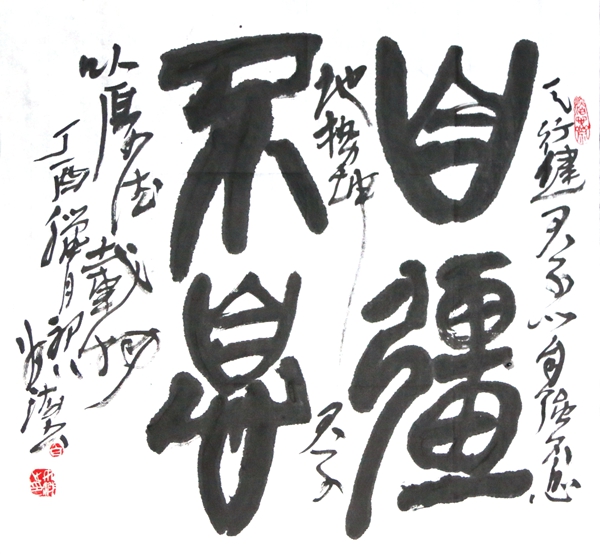 天行健君子以自强不息
自彊
地势坤
君子
不息
以厚德載物
丁酉臘月初八